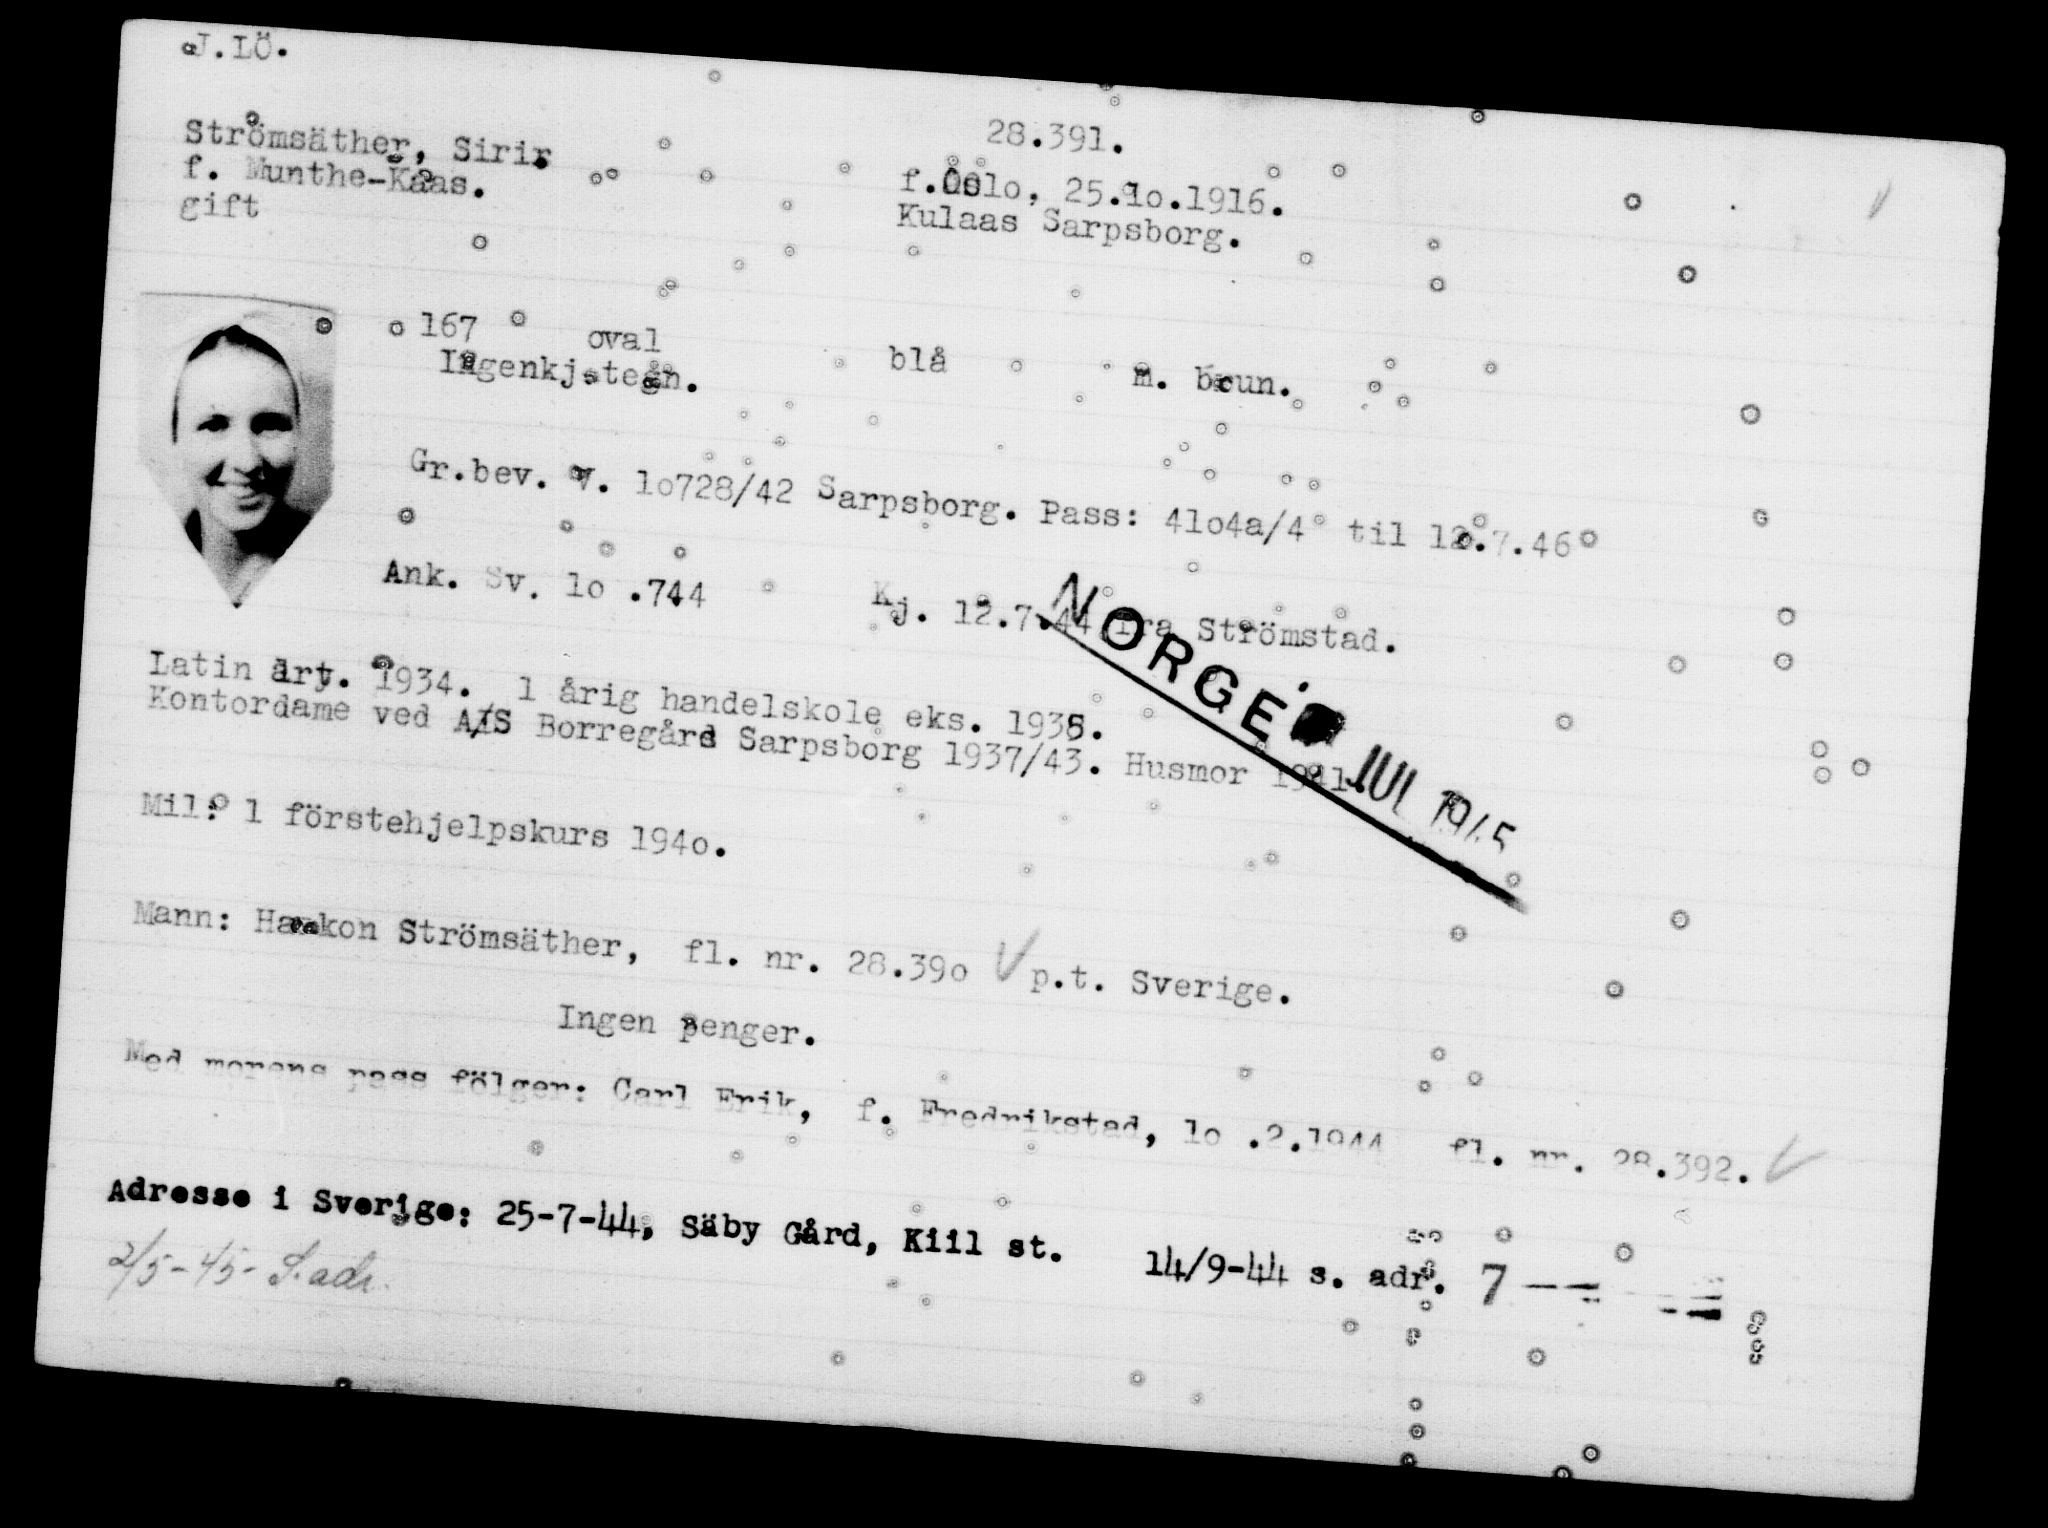 J.LÖ.
28.391.
Strömsäther, Siri
f. Munthe-Kaas.
gift
f. Oslo, 25.1o.1916.
Kulaas Sarpsborg.
167 oval
Ingenkj.tegn. blå m. brun.
Gr.bev. V. 1o728/42 Sarpsborg. Pass: 41o4a/4 til 12.7.46
Ank. Sv. 1o .744 Kj. 12.7.44 fra Strömstad.
Latin art. 1934. 1 årig handelskole eks. 1935.
Kontordame ved A/S Borregård Sarpsborg 1937/43. Husmor 1941.
NORGE JUL 1945
Mil: 1 förstehjelpskurs 194o.
Mann: Haakon Strömsäther, fl. nr. 28.39o p.t. Sverige.
Ingen penger.
Med morens pass fölger: Carl Erik, f. Fredrikstad, 1o .2.1944 fl. nr. 28.392.
Adresse i Sverige: 25-7-44, Säby Gård, Kiil st. 14/9-44 s. adr. 7
2/5-45- S. adr.